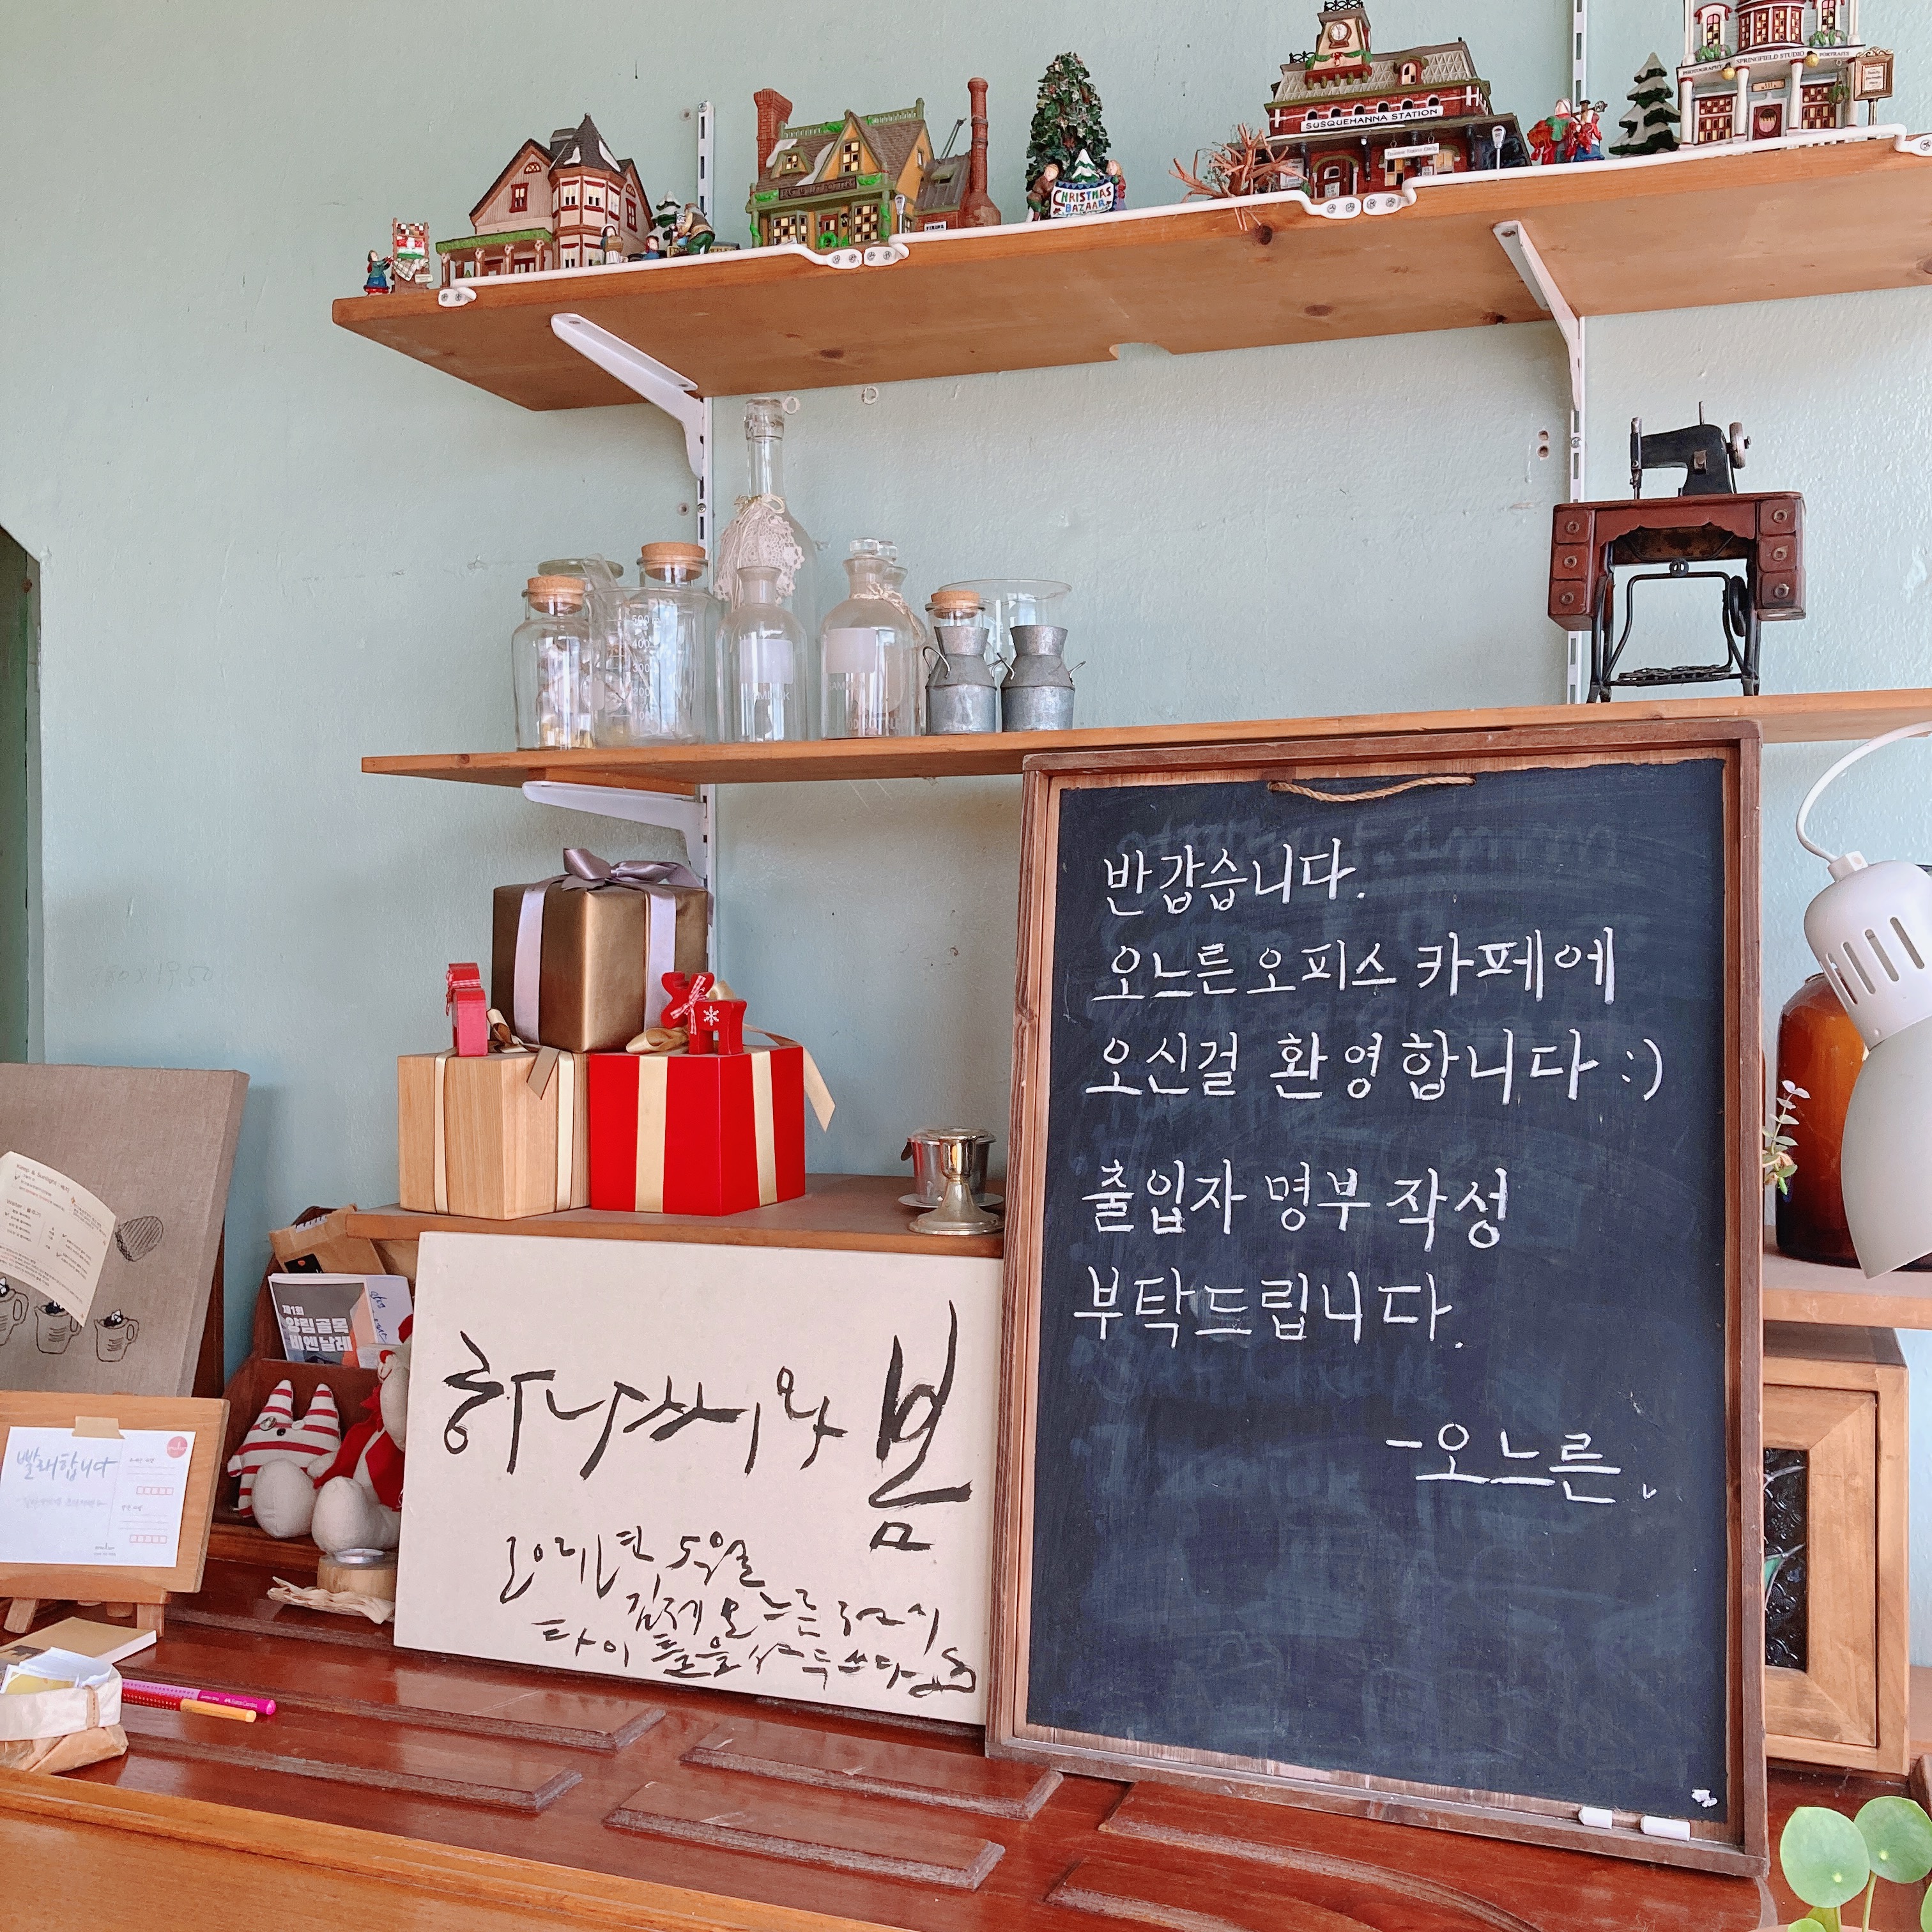 SPRINGFIELD STUDIO
PHOTOGRAPHY
PORTRAITS
SUSQUEHANNA STATION
CHRISTMAS
BAZAAR
500
400
300
반갑습니다.
오느른 오피스 카페에
오신걸 환영합니다 :)
출입자 명부 작성
부탁드립니다.
-오느른.
하나씨와 봄
2021년 5월
김제 오느른에서
타이틀을 쓰다
제1회
양림골목
비엔날레
빨래합니다